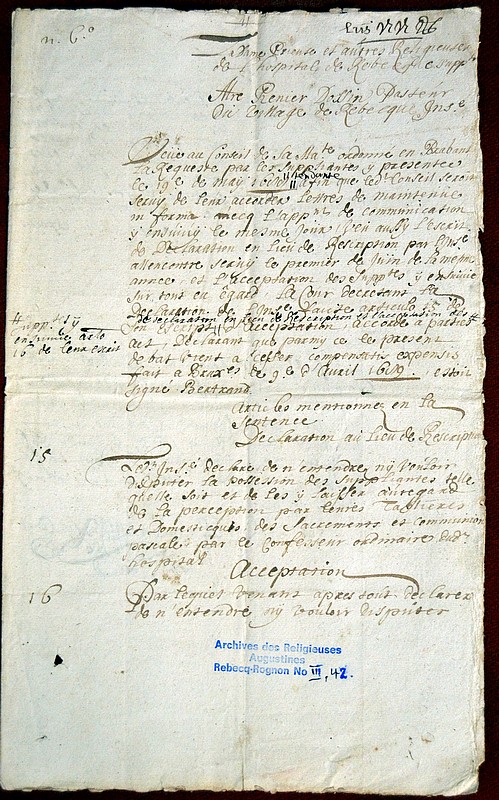 n. 6.º
Dame Prieuse et autres Religieuses
de l'hospital de Rebecq suppl.
Mre Renier Pasteur
du village de Rebecque Jnsé
Veüe au Conseil de Sa Maté ordonné en Brabant
la Requeste par les suppliantes y presentée
le 19e de may tendante affin que le dt Conseil seroit
servy de leur accorder lettres de maintenüe
in forma avecq l'appnt de communication
y ensuivy le mesme jour veu aussy l'escrit
de Declaration en Lieu de Rescription par l'Jnsé
allencontre servy le premier de Juin de la mesme
année et l'Acceptation des supptes y ensuivie
sur tout eu égard La Cour decretant la
Declaration de l'Jnsé faicte articulo 15 de
son escript de Declaration en lieu de Rescription et l'acceptation des #
# suppl. y
ensuivie arlo
16 de leur escrit
Acceptation Accorde a parties
act, Declarant que parmy ce le present
debat vient a cesser compensatis expensis
fait a Bruxes le 9e d'Avril 1689. estoit
signé Bertrand.
Articles mentionnez en la
sentence
Declaration au lieu de Rescription
15
Le dt Jnsé declare de n'entendre ny vouloir
disputer la possession des suppliantes telle
quelle soit et de les y laisser au regard
de la perception par leures
et Domesticques des Sacrements et communion
pascale par le Confesseur ordinaire dudt
hospital
Acceptation
16
Par lequel venant apres tout declarer
de n'entendre ny vouloir disputer
Archives des Religieuses
Augustines
Rebecq-Rognon No III, 42.